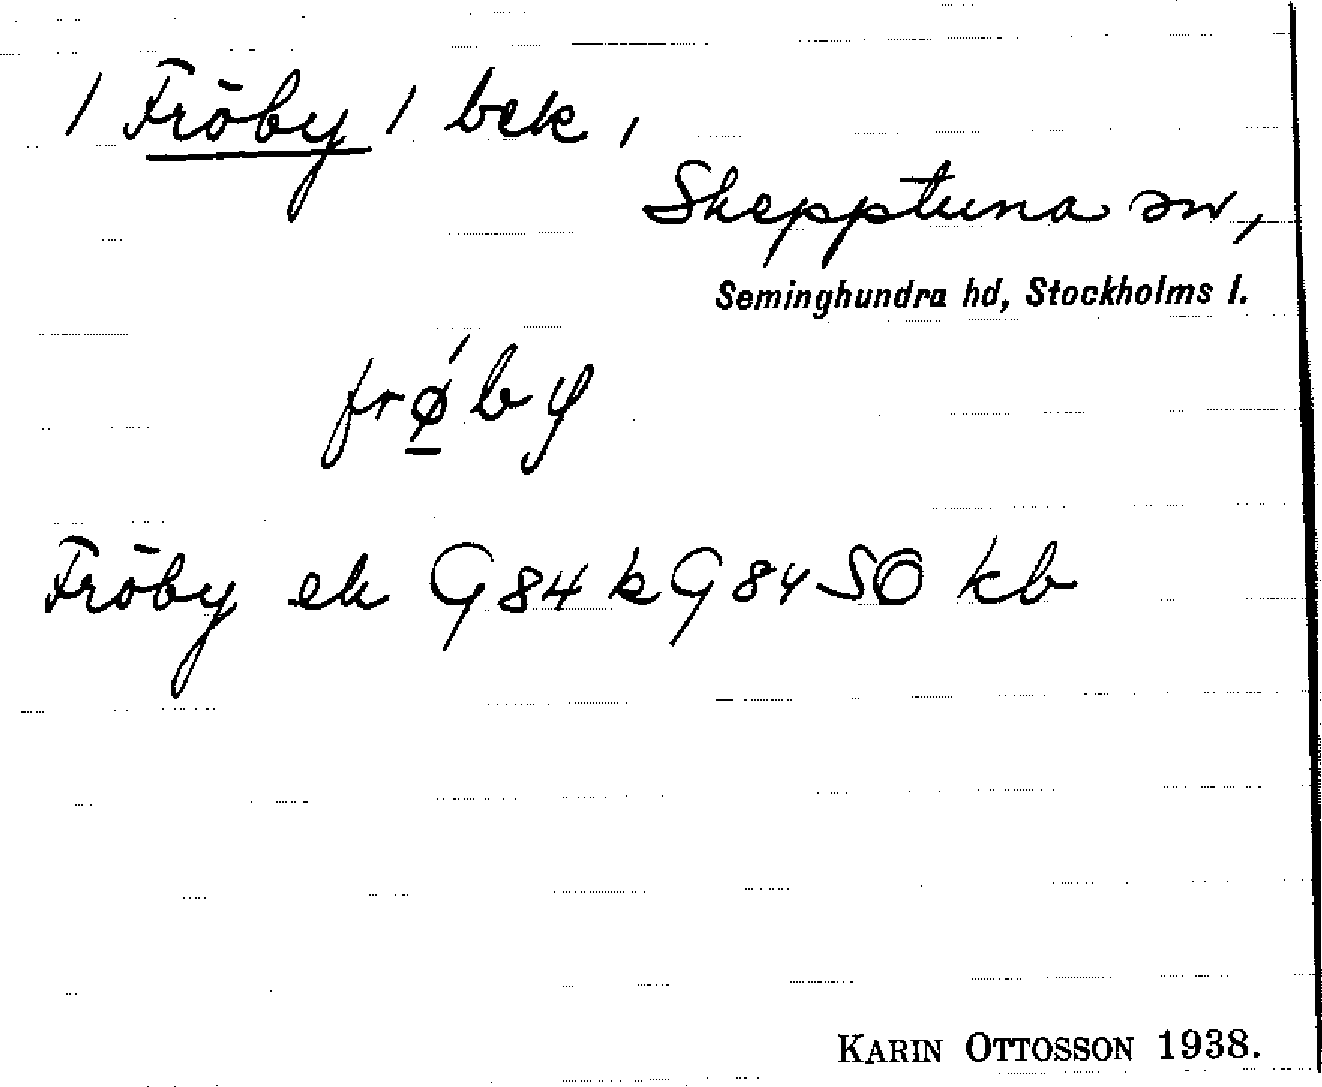 / Fröby / bek,
Skepptuna sn,
Seminghundra hd, Stockholms l.
frǿ̲by
Fröby ek G84 k G84 SO kb
KARIN OTTOSSON 1938.